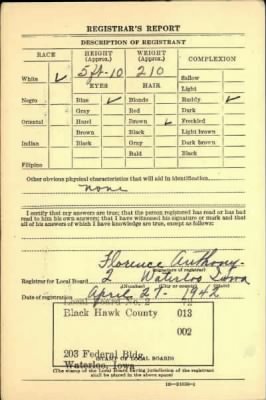 REGISTRAR'S REPORT
DESCRIPTION OF REGISTRANT
RACE HEIGHT (Approx.) WEIGHT (Approx.) COMPLEXION
White ✓ 5 ft-10 210 Sallow
EYES HAIR Light
Negro Blue ✓ Blonde Ruddy ✓
Gray Red Dark
Oriental Hazel Brown ✓ Freckled
Brown Black Light brown
Indian Black Gray Dark brown
Bald Black
Filipino
Other obvious physical characteristics that will aid in identification
none
I certify that my answers are true; that the person registered has read or has had
read to him his own answers; that I have witnessed his signature or mark and that
all of his answers of which I have knowledge are true, except as follows:
Florence Anthony
(Signature of registrar)
Registrar for Local Board 2 Waterloo Iowa
(Number) (City or county)
Date of registration April 27-1942
Black Hawk County 013
002
203 Federal Bldg.
Waterloo, Iowa
(STAMP OF LOCAL BOARD)
(The stamp of the Local Board having jurisdiction of the registrant
shall be placed in the above space)